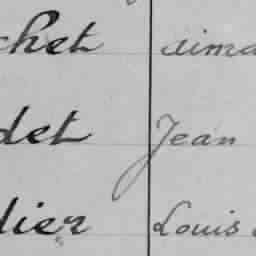 chet aima
det Jean
dier Louis